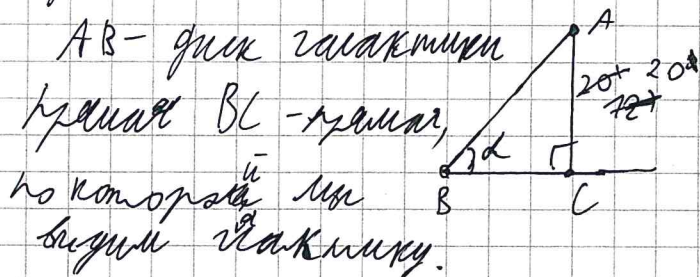 AB - диск галактики
прямая BC - прямая,
по которой мы
видим галактику.
A
α
B
C
20